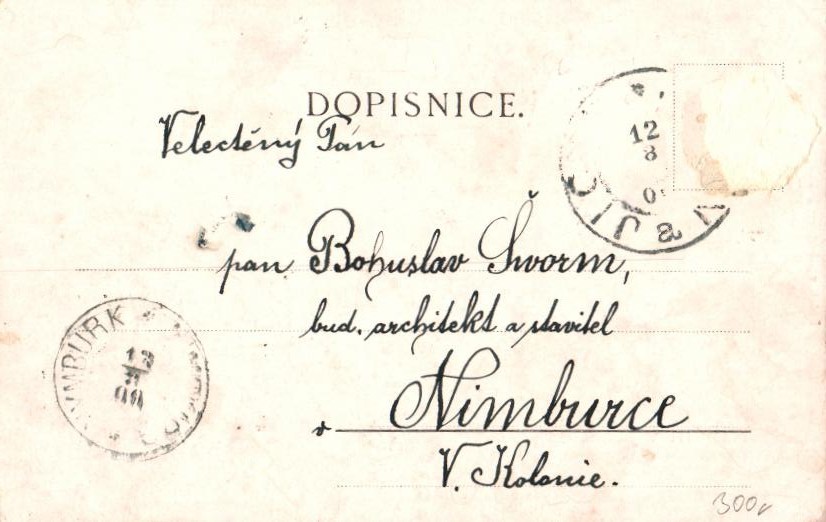 DOPISNICE.
Velectěný Pán
pan Bohuslav Šworm,
bud. architekt a stavitel
v Nimburce
V. Kolonie.
12
8
JIČ
a
NYMBURK
300,-